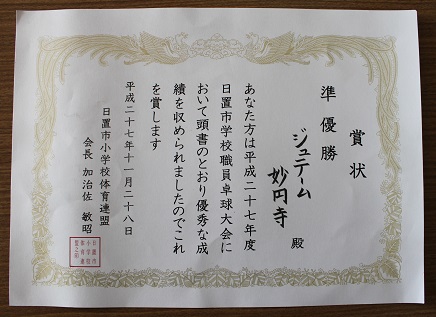 賞状
準優勝
ジュテーム
妙円寺 殿
あなた方は平成二十七年度
日置市学校職員卓球大会に
おいて頭書のとおり優秀な成
績を収められましたのでこれ
を賞します
平成二十七年十一月二十八日
日置市小学校体育連盟
会長 加治佐 敏昭